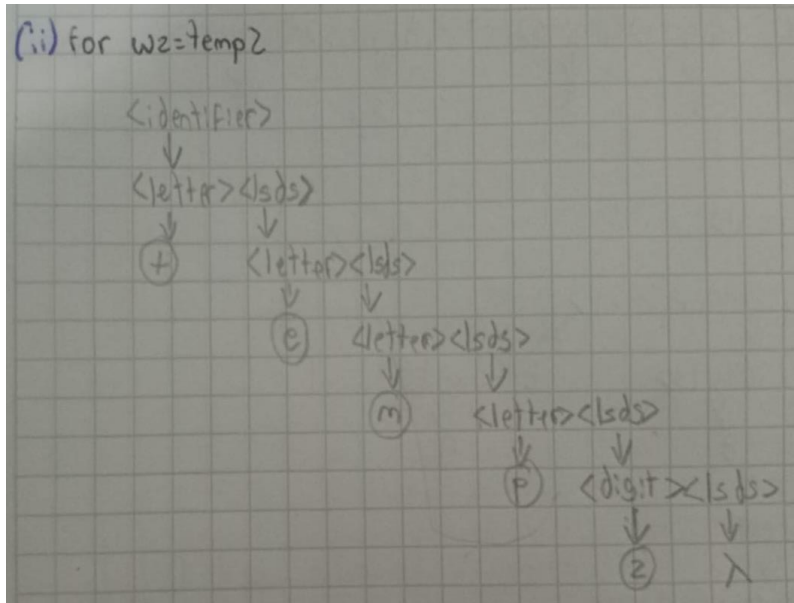 (ii) for w2=temp2
<identifier>
<letter><lsds>
t <letter><lsds>
e <letter><lsds>
m <letter><lsds>
p <digit><lsds>
2 λ